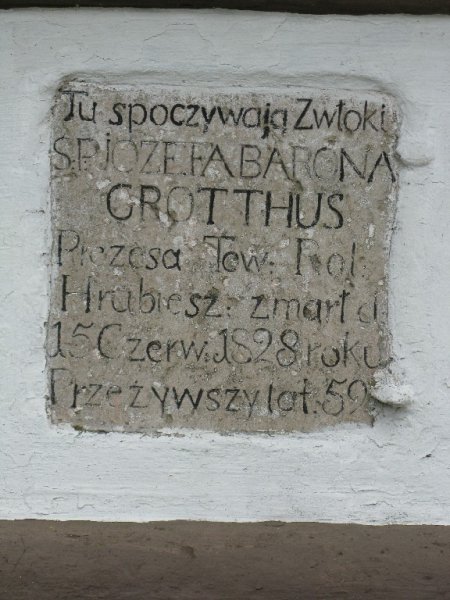 Tu spoczywają Zwłoki
Ś.P. JÓZEFA BARONA
GROTTHUS
Prezesa Tow: Rol:
Hrubiesz: zmarł d
15 Czerw: 1828 roku
Przeżywszy lat: 59